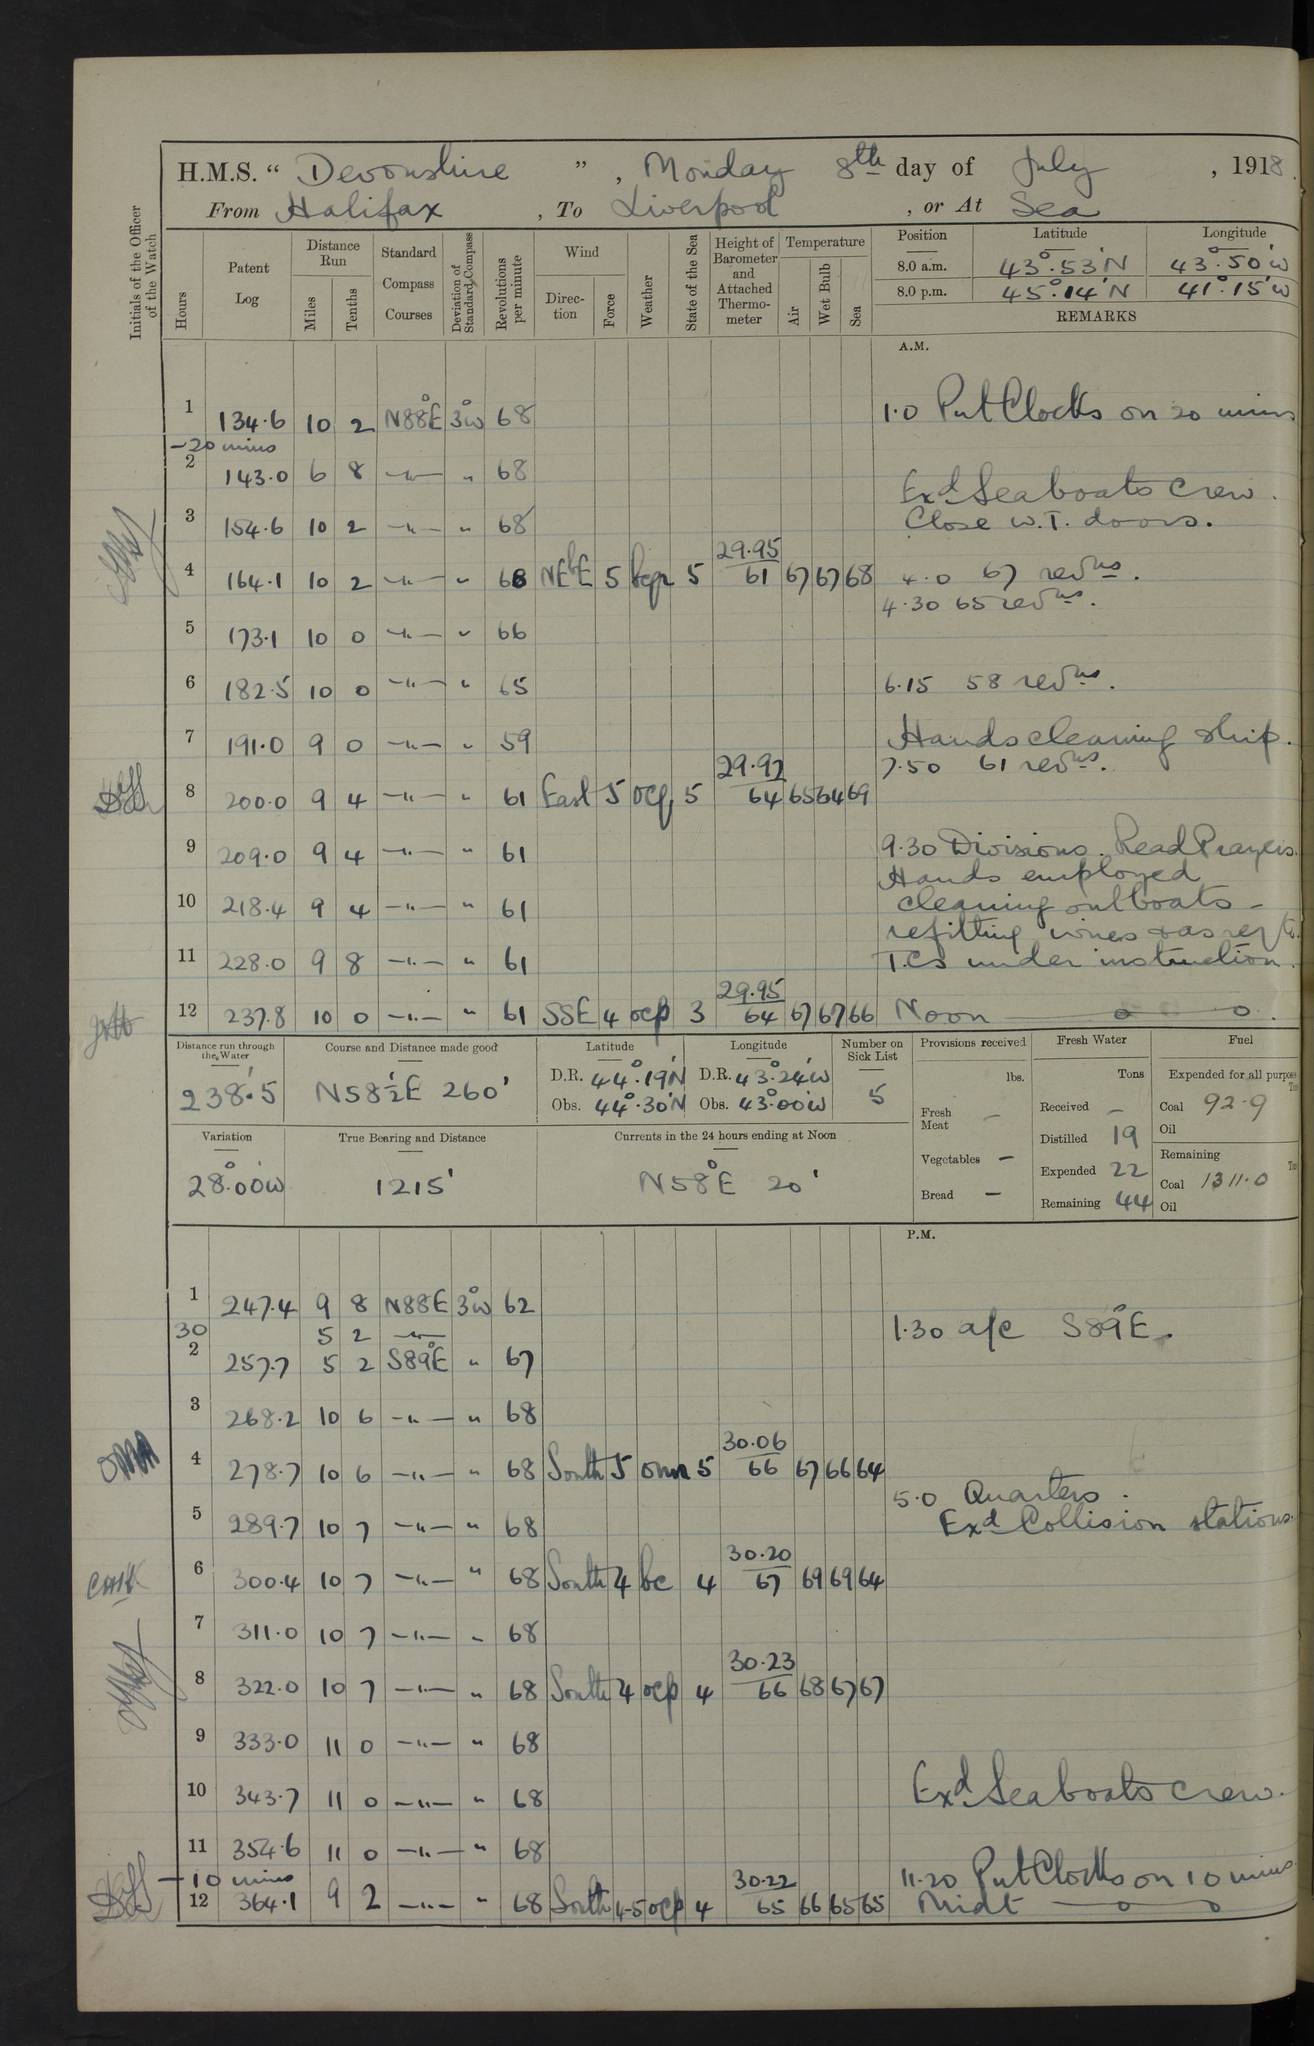 H.M.S. “ Devonshire ”, Monday 8th day of July, 1918.
From Halifax, To Liverpool, or At Sea
Initials of the Officer of the Watch
Hours
Patent Log
Distance Run
Miles
Tenths
Standard Compass Courses
Deviation of Standard Compass
Revolutions per minute
Wind
Direc-tion
Force
Weather
State of the Sea
Height of Barometer and Attached Thermo-meter
Temperature
Air
Wet Bulb
Sea
Position Latitude Longitude
8.0 a.m. 43°.53'N 43°.50'W
8.0 p.m. 45°.14'N 41°.15'W
REMARKS
A.M.
1 134.6 10 2 N88°E 3°W 68 1.0 Put Clocks on 20 mins
-20 mins
2 143.0 6 8 -"- " 68
Exd Seaboats Crew.
3 154.6 10 2 -"- " 68 Close W.T. doors.
29.95
4 164.1 10 2 -"- " 68 NEbE 5 5 61 67 67 68 4.0 67 revns.
4.30 65 revns.
5 173.1 10 0 -"- " 66
6 182.5 10 0 -"- " 65 6.15 58 revns.
7 191.0 9 0 -"- " 59 Hands cleaning ship.
29.92 7.50 61 revns.
8 200.0 9 4 -"- " 61 East 5 ocp 5 64 65 64 69
9 209.0 9 4 -"- " 61 9.30 Divisions. Read Prayers.
Hands employed
10 218.4 9 4 -"- " 61 cleaning out boats -
refitting wires & as req
11 228.0 9 8 -"- " 61 T.Cs under instruction.
29.95
12 237.8 10 0 -"- " 61 SSE 4 ocp 3 64 67 67 66 Noon
Distance run through the Water
238'.5
Course and Distance made good
N58½E 260'
Latitude
D.R. 44°.19'N
Obs. 44°.30'N
Longitude
D.R. 43°.24'W
Obs. 43°.00'W
Number on Sick List
5
Provisions received
lbs.
Fresh Meat –
Vegetables –
Bread –
Fresh Water
Tons
Received –
Distilled 19
Expended 22
Remaining 44
Fuel
Expended for all purpose
Coal 92.9
Oil
Remaining
Coal 1311.0
Oil
Variation
28°.00'W
True Bearing and Distance
1215'
Currents in the 24 hours ending at Noon
N58°E 20'
P.M.
1 247.4 9 8 N88E 3°W 62
30 5 2 -"- 1.30 a/c S89°E.
2 257.7 5 2 S89°E " 67
3 268.2 10 6 -"- " 68
30.06
4 278.7 10 6 -"- " 68 South 5 5 66 67 66 64
5.0 Quarters.
5 289.7 10 7 -"- " 68 Exd Collision stations.
30.20
6 300.4 10 7 -"- " 68 South 4 bc 4 67 69 69 64
7 311.0 10 7 -"- " 68
30.23
8 322.0 10 7 -"- " 68 South 4 ocp 4 66 68 67 67
9 333.0 11 0 -"- " 68
10 343.7 11 0 -"- " 68 Exd Seaboats Crew.
11 354.6 11 0 -"- " 68
-10 mins 30.22 11.20 Put Clocks on 10 mins
12 364.1 9 2 -"- " 68 South 4-5 ocp 4 65 66 65 65 Midt